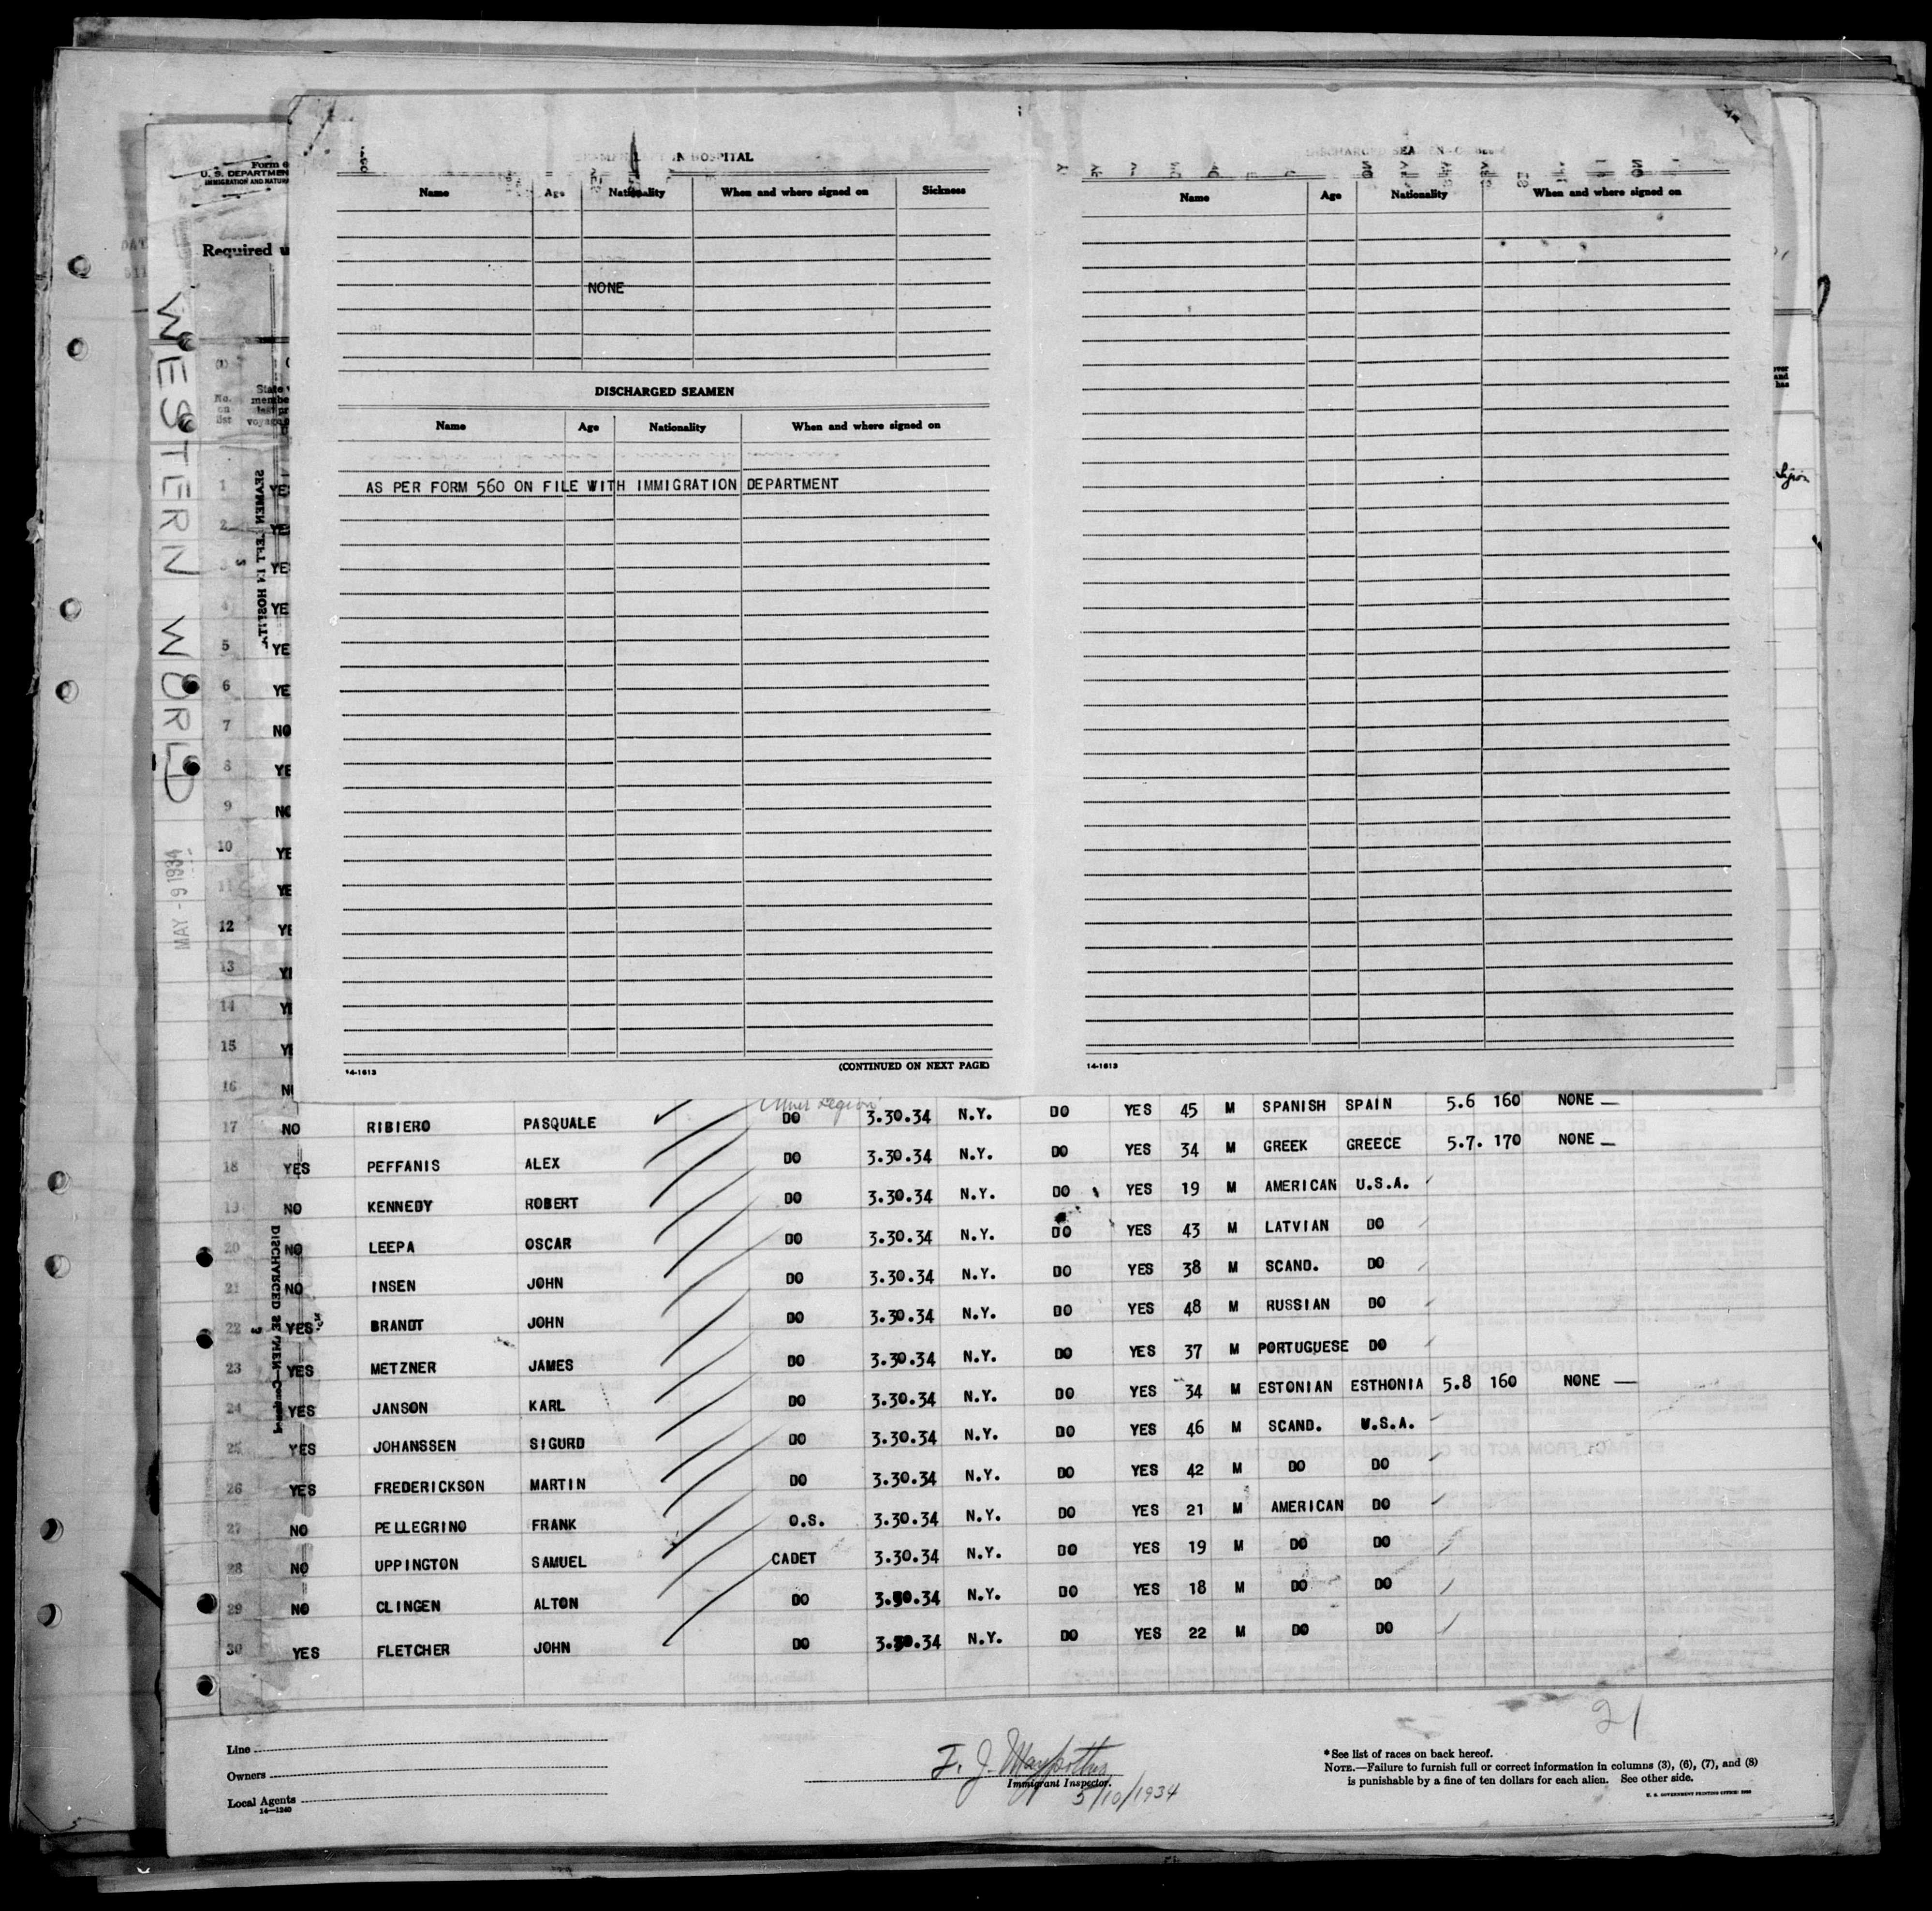 Form
U. S. DEPARTMEN
IMMIGRATION AND NATUR
Required u
WESTERN WORLD
MAY - 9 1934
No. on list
IN HOSPITAL
Name Age Nationality When and where signed on Sickness
NONE
DISCHARGED SEAMEN
Name Age Nationality When and where signed on
AS PER FORM 560 ON FILE WITH IMMIGRATION DEPARTMENT
14-1613 (CONTINUED ON NEXT PAGE)
Name Age Nationality When and where signed on
14-1613
1 YES
2 YE
3 YE
4 YE
5 YE
6 YE
7 NO
8 YE
9 NO
10 YE
11 YE
12 YE
13 YE
14 YE
15 YE
16 N
17 NO RIBIERO PASQUALE DO 3.30.34 N.Y. DO YES 45 M SPANISH SPAIN 5.6 160 NONE
18 YES PEFFANIS ALEX DO 3.30.34 N.Y. DO YES 34 M GREEK GREECE 5.7. 170 NONE
19 NO KENNEDY ROBERT DO 3.30.34 N.Y. DO YES 19 M AMERICAN U.S.A.
20 NO LEEPA OSCAR DO 3.30.34 N.Y. DO YES 43 M LATVIAN DO
21 NO INSEN JOHN DO 3.30.34 N.Y. DO YES 38 M SCAND. DO
22 YES BRANDT JOHN DO 3.30.34 N.Y. DO YES 48 M RUSSIAN DO
23 YES METZNER JAMES DO 3.30.34 N.Y. DO YES 37 M PORTUGUESE DO
24 YES JANSON KARL DO 3.30.34 N.Y. DO YES 34 M ESTONIAN ESTHONIA 5.8 160 NONE
25 YES JOHANSSEN SIGURD DO 3.30.34 N.Y. DO YES 46 M SCAND. U.S.A.
26 YES FREDERICKSON MARTIN DO 3.30.34 N.Y. DO YES 42 M DO DO
27 NO PELLEGRINO FRANK O.S. 3.30.34 N.Y. DO YES 21 M AMERICAN DO
28 NO UPPINGTON SAMUEL CADET 3.30.34 N.Y. DO YES 19 M DO DO
29 NO CLINGEN ALTON DO 3.30.34 N.Y. DO YES 18 M DO DO
30 YES FLETCHER JOHN DO 3.30.34 N.Y. DO YES 22 M DO DO
21
Line
Owners
Local Agents
14-1240
Immigrant Inspector.
5/10/1934
*See list of races on back hereof.
NOTE.—Failure to furnish full or correct information in columns (3), (6), (7), and (8)
is punishable by a fine of ten dollars for each alien. See other side.